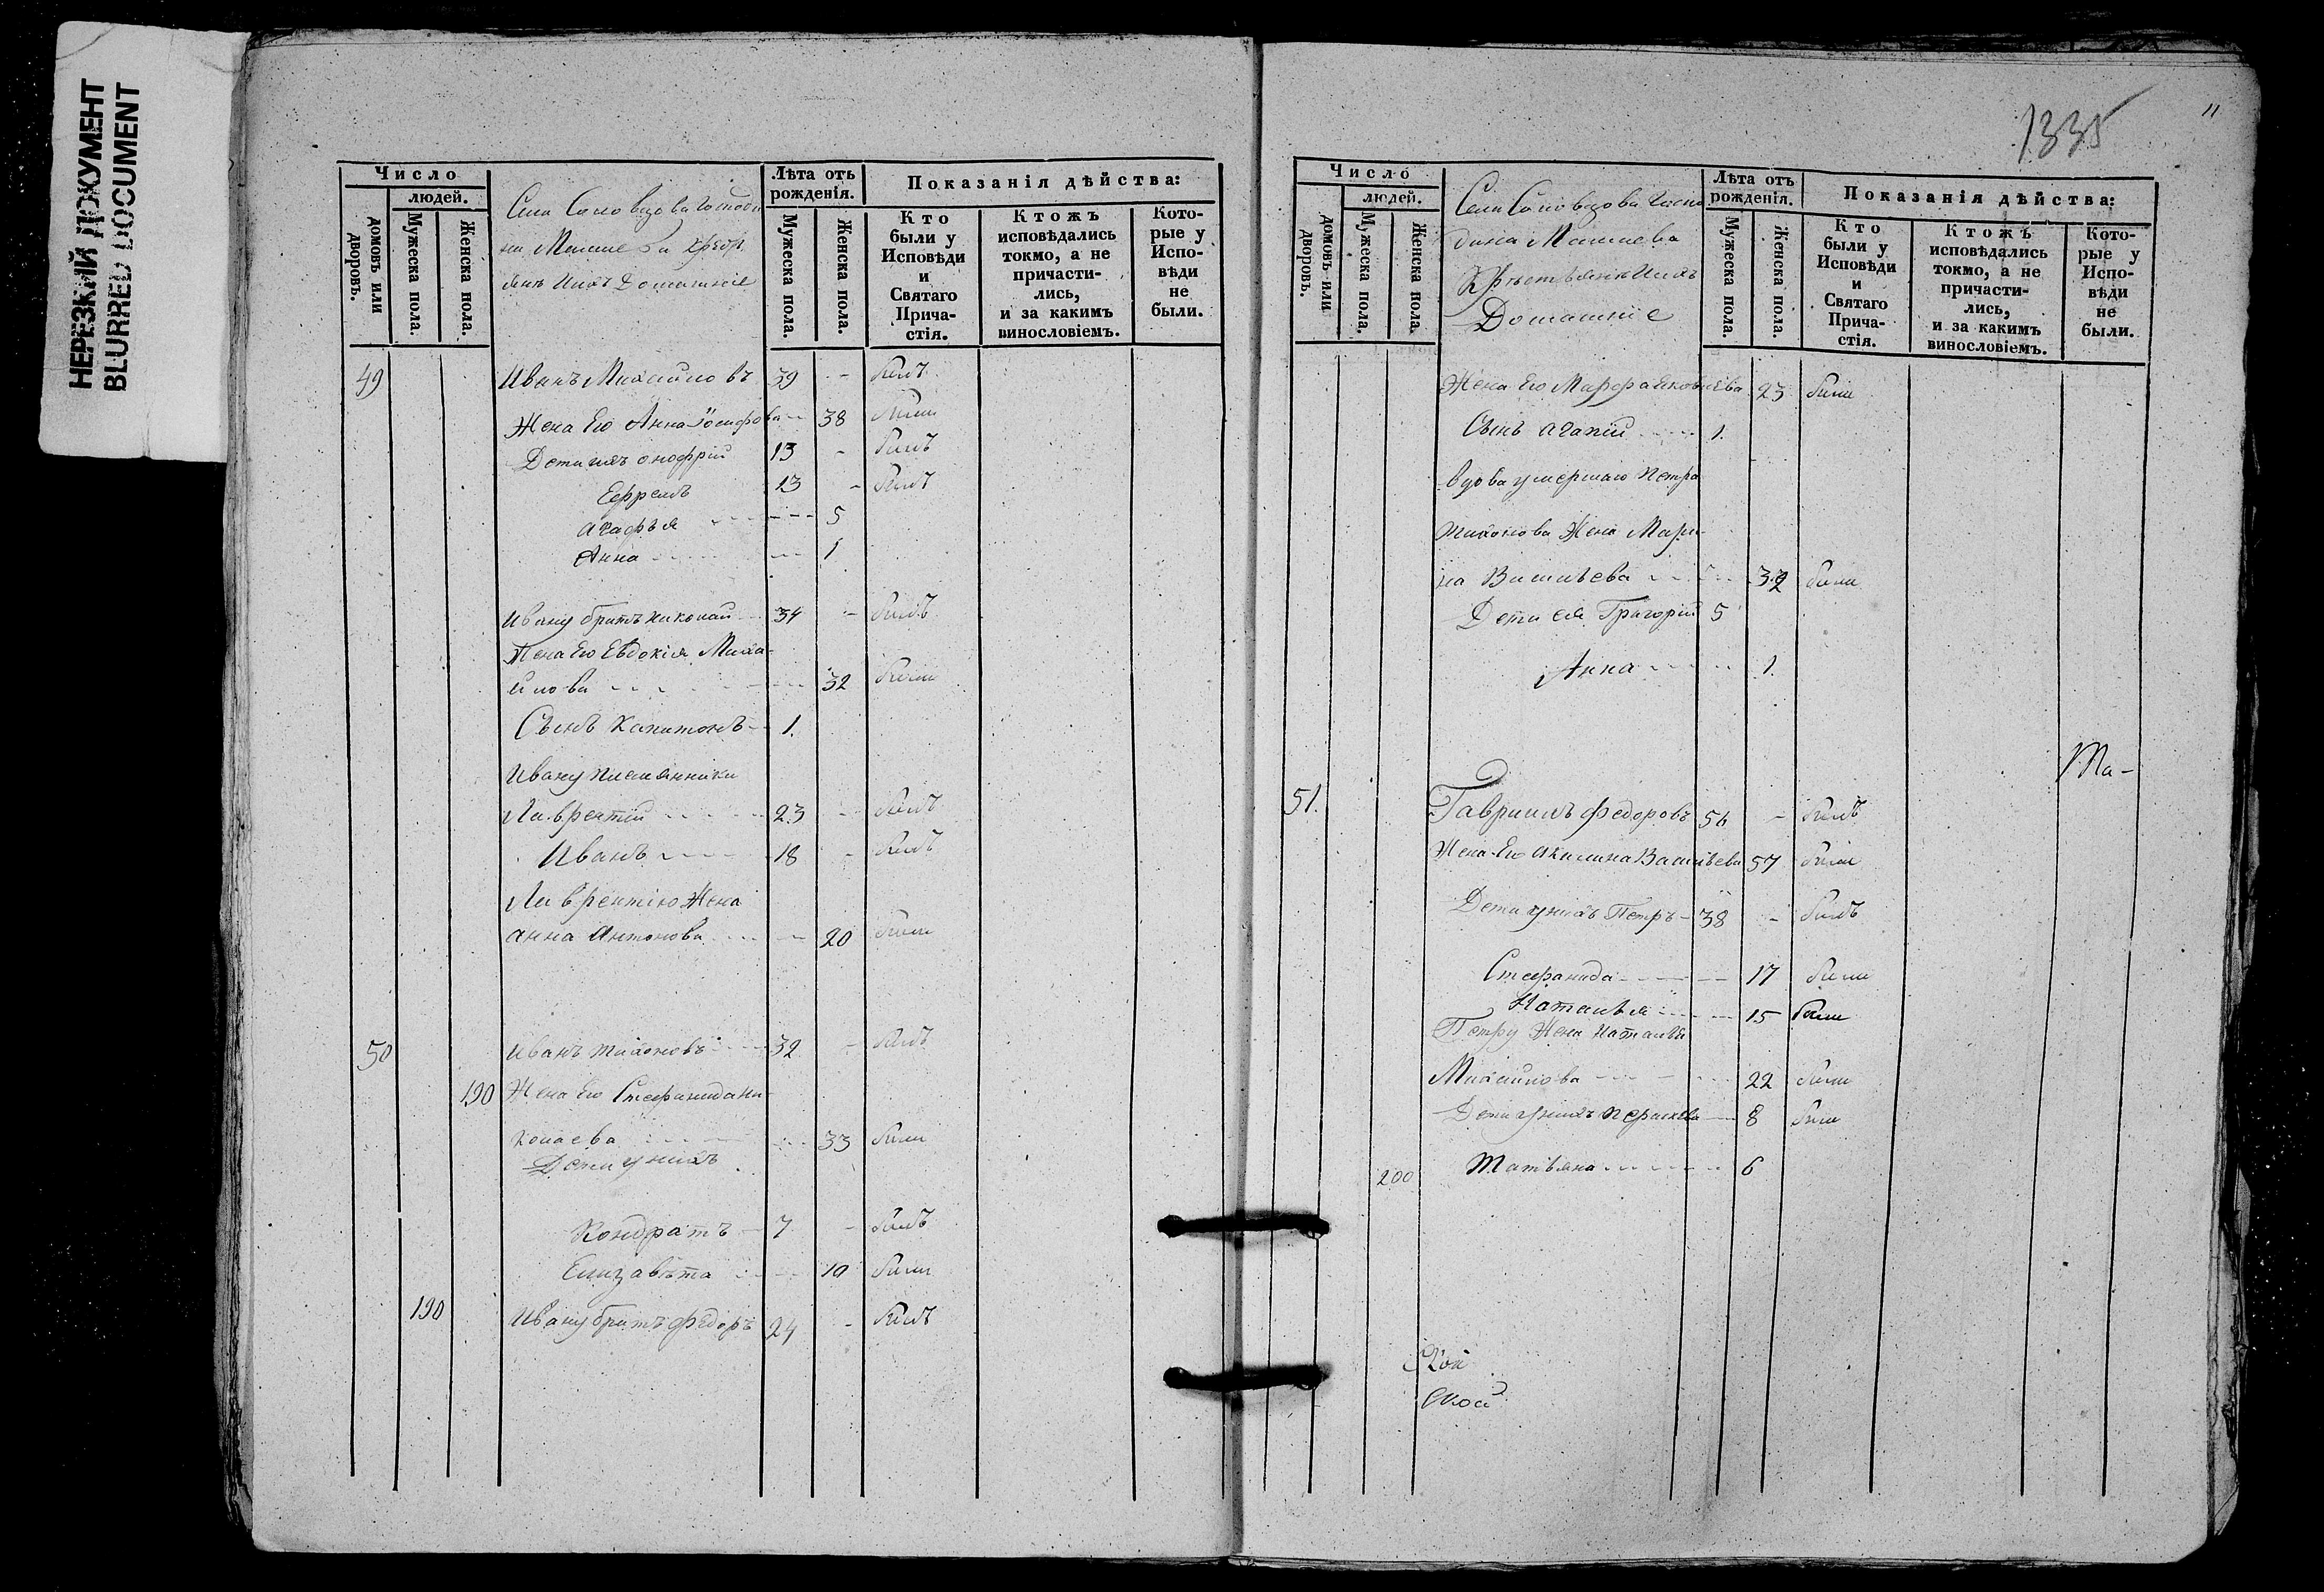 НЕРЕЗКИЙ ДОКУМЕНТ
BLURRED DOCUMENT
Число
людей.
домовъ или дворовъ.
Мужеска пола.
Женска пола.
Села Соловцова Господи
на Машаева Крестья
янъ Ихъ Домашніе
Лѣта отъ рожденія.
Мужеска пола.
Женска пола.
Показанія дѣйства:
Кто были у Исповѣди и Святаго Прича-стія.
Ктожъ исповѣдались токмо, а не причасти-лись, и за какимъ винословіемъ.
Кото-рые у Испо-вѣди не были.
49 Иванъ Михайловъ 39 - былъ
Жена Его Анна Іосифова 38 была
Дети ихъ Онофрій 13 - былъ
Ефремъ 13 - былъ
Агафья 5
Анна 1
Ивану братъ Николай 34 - былъ
Жена Его Евдокія Миха-
йлова 32 была
Сынъ Капитонъ 1.
Ивану племянники
Лаврентій 23 - былъ
Иванъ 18 - былъ
Лаврентію Жена
Анна Антонова 20 была
50 Иванъ Тихоновъ 32 - былъ
190 Жена Его Стефанида Ни-
колаева 33 была
Дети у нихъ
Кондратъ 7 - былъ
Елизавѣта 10 была
190 Ивану братъ Федоръ 24 - былъ
1335
11
Число
людей.
домовъ или дворовъ.
Мужеска пола.
Женска пола.
Села Соловцова Госпо
дина Машаева
Крестьянъ Ихъ
Домашніе
Лѣта отъ рожденія.
Мужеска пола.
Женска пола.
Показанія дѣйства:
Кто были у Исповѣди и Святаго Прича-стія.
Ктожъ исповѣдались токмо, а не причасти-лись, и за какимъ винословіемъ.
Кото-рые у Испо-вѣди не были.
Жена Его Марфа Яковлева 23 была
Сынъ Агапій 1.
вдова умершаго Петра
Тихонова Жена Мари-
на Васильева 32 была
Дети ея Григорій 5
Анна 1.
Ma-
51. Гавріилъ Федоровъ 56 - былъ
Жена Его Акилина Васильева 57 была
Дети у нихъ Петръ 38 - былъ
Стефанида 17 была
Наталья 15 была
Петру Жена Наталья
Михайлова 22 была
Дети у нихъ Парасковья 8 была
200 Татьяна 6
ской